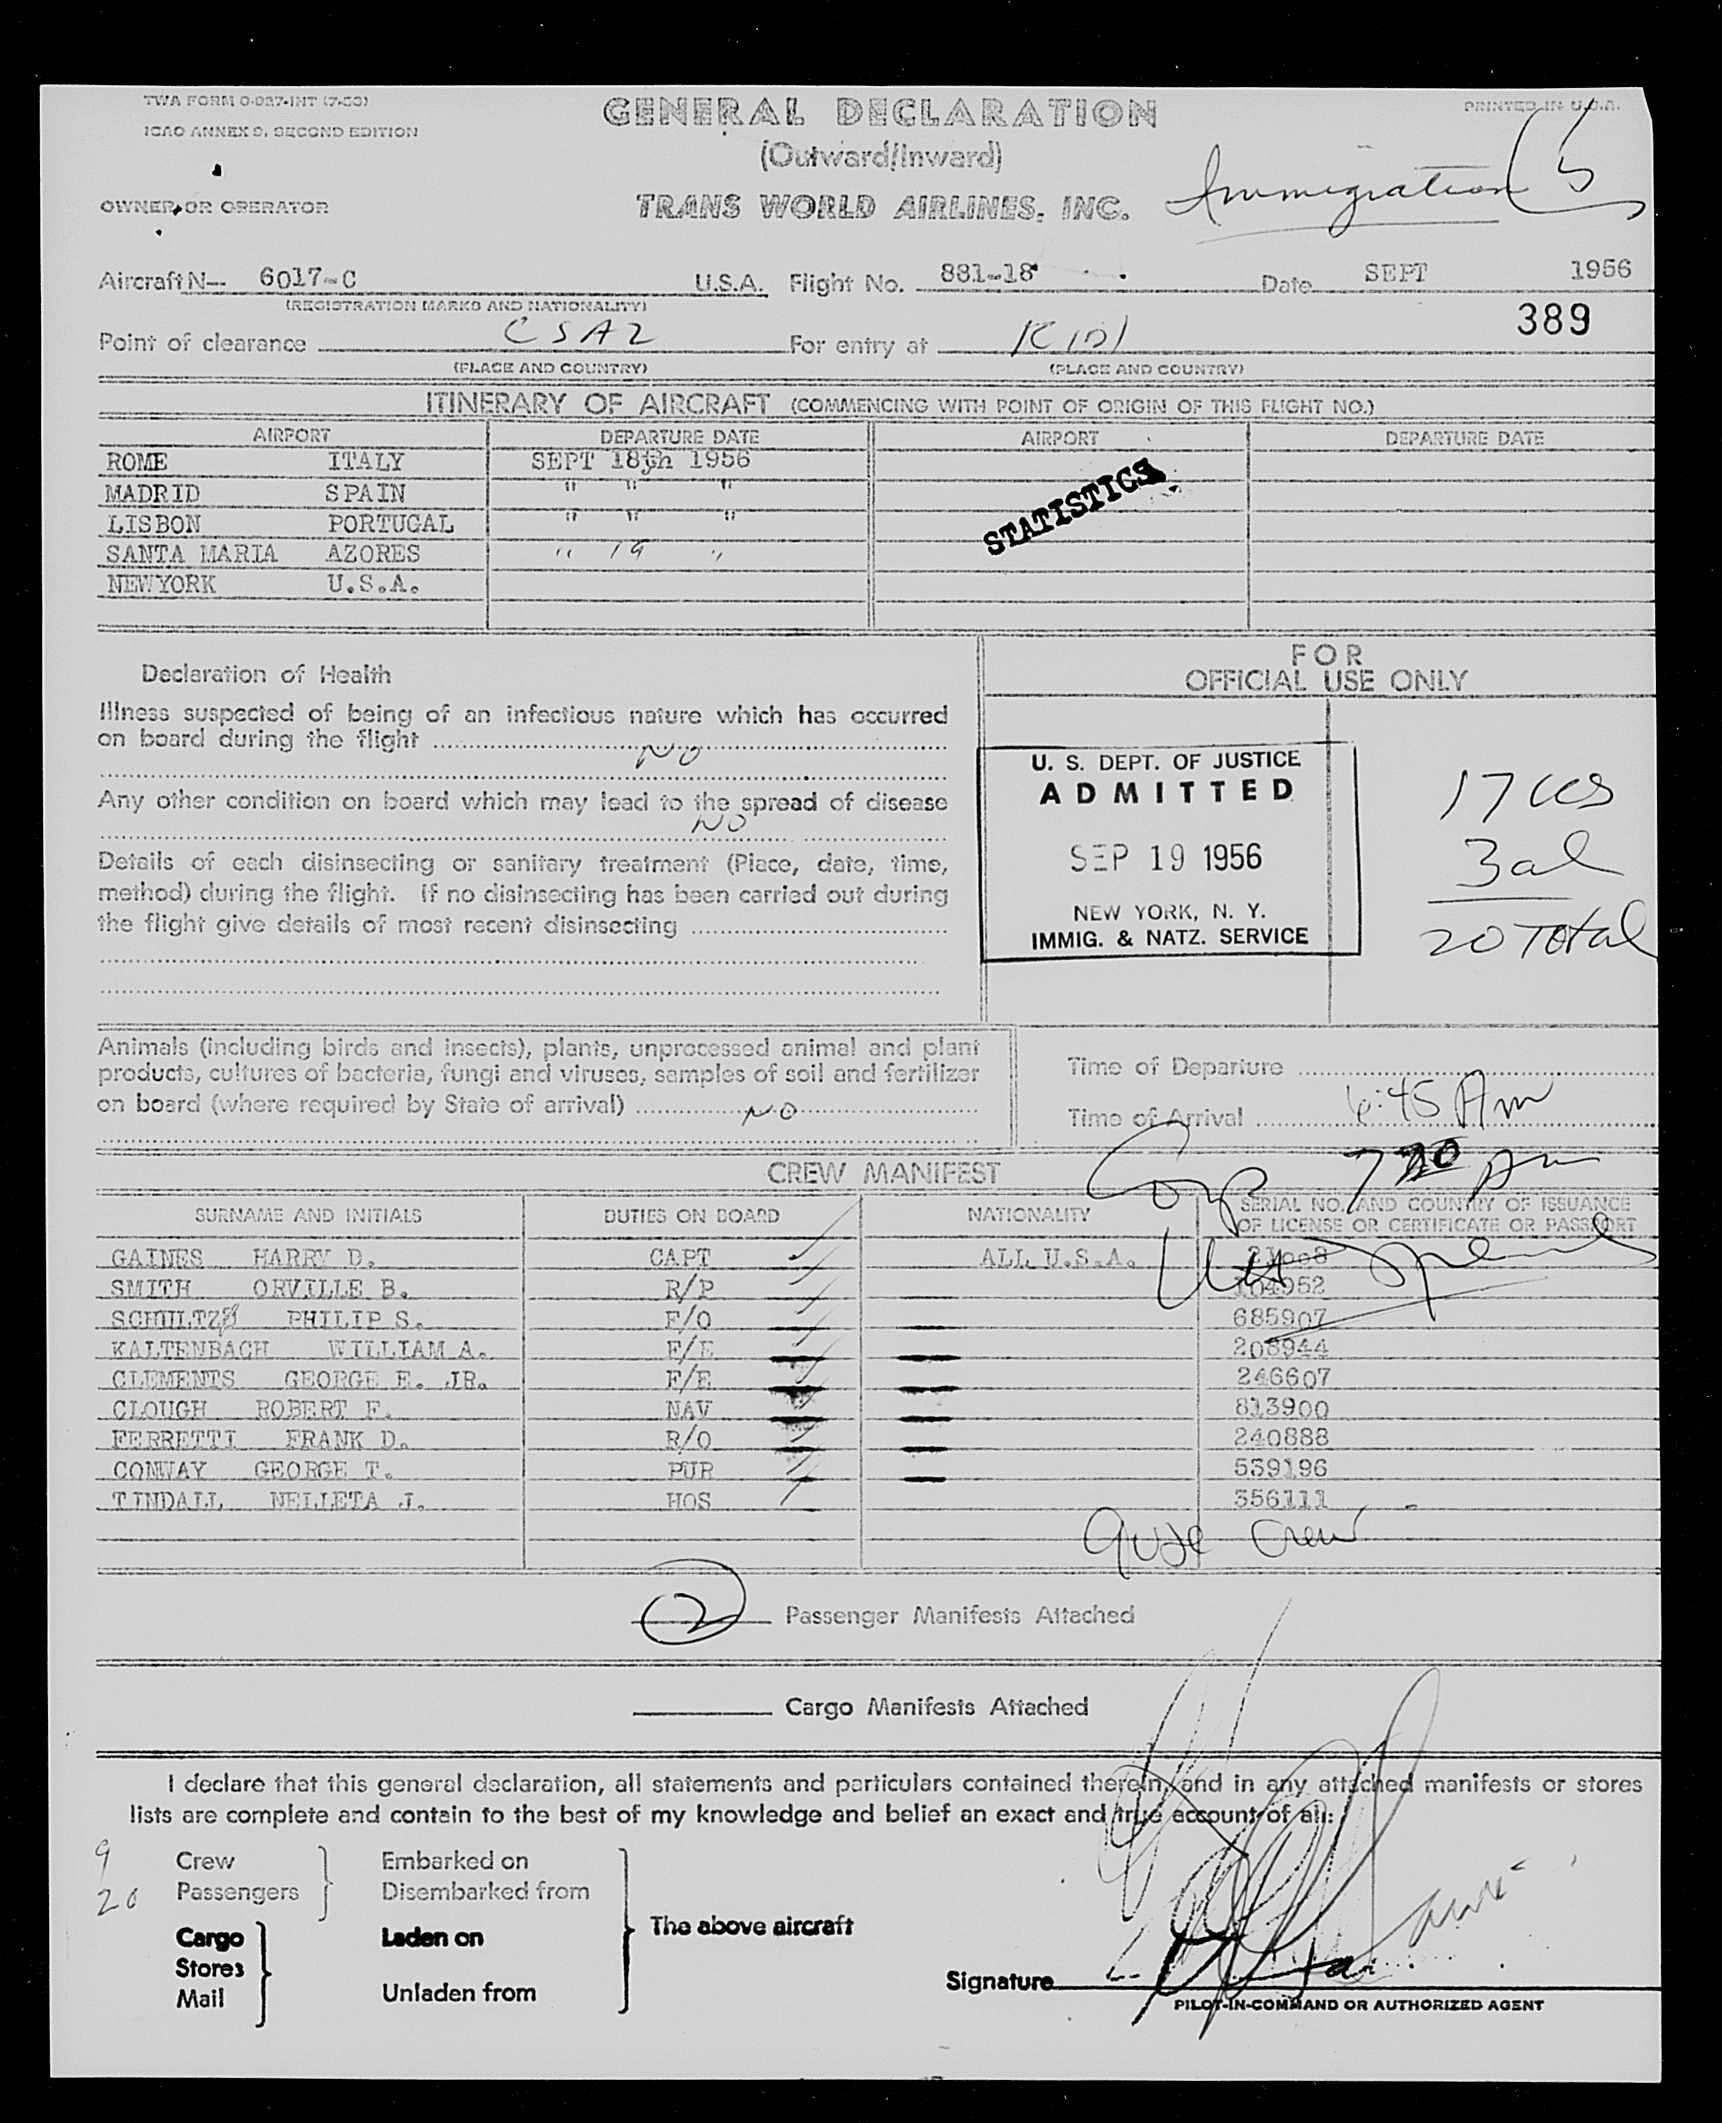 TWA FORM O-087-INT (7-53)
ICAO ANNEX 9, SECOND EDITION
PRINTED IN U.S.A.
GENERAL DECLARATION
(Outward/Inward)
Immigration
OWNER OR OPERATOR
TRANS WORLD AIRLINES, INC.
Aircraft N-- 6017-C U.S.A. Flight No. 881-18 Date SEPT 1956
(REGISTRATION MARKS AND NATIONALITY)
389
Point of clearance CSAZ For entry at KIDL
(PLACE AND COUNTRY) (PLACE AND COUNTRY)
ITINERARY OF AIRCRAFT (COMMENCING WITH POINT OF ORIGIN OF THIS FLIGHT NO.)
AIRPORT DEPARTURE DATE AIRPORT DEPARTURE DATE
ROME ITALY SEPT 18th 1956
MADRID SPAIN " " "
LISBON PORTUGAL " " "
SANTA MARIA AZORES " 19 "
NEWYORK U.S.A.
STATISTICS
Declaration of Health
FOR
OFFICIAL USE ONLY
Illness suspected of being of an infectious nature which has occurred
on board during the flight NO
Any other condition on board which may lead to the spread of disease
NO
Details of each disinsecting or sanitary treatment (Place, date, time,
method) during the flight. If no disinsecting has been carried out during
the flight give details of most recent disinsecting
U. S. DEPT. OF JUSTICE
ADMITTED
SEP 19 1956
NEW YORK, N. Y.
IMMIG. & NATZ. SERVICE
17 ccs
3 al
20 Total
Animals (including birds and insects), plants, unprocessed animal and plant
products, cultures of bacteria, fungi and viruses, samples of soil and fertilizer
on board (where required by State of arrival) NO
Time of Departure
Time of Arrival 6:45 Am
CREW MANIFEST
SURNAME AND INITIALS DUTIES ON BOARD NATIONALITY SERIAL NO. AND COUNTRY OF ISSUANCE
OF LICENSE OR CERTIFICATE OR PASSPORT
GAINES HARRY D. CAPT ALL U.S.A.
SMITH ORVILLE B. R/P 104952
SCHULTZ PHILIP S. F/O 685907
KALTENBACH WILLIAM A. F/E 208944
CLEMENTS GEORGE E. JR. F/E 246607
CLOUGH ROBERT F. NAV 813900
FERRETTI FRANK D. R/O 240888
CONWAY GEORGE T. PUR 539196
TINDALL NELLETA J. HOS 356111
9 USC Crew
2 Passenger Manifests Attached
Cargo Manifests Attached
I declare that this general declaration, all statements and particulars contained therein, and in any attached manifests or stores
lists are complete and contain to the best of my knowledge and belief an exact and true account of all:
9 Crew Embarked on
20 Passengers Disembarked from
Cargo Laden on The above aircraft
Stores
Mail Unladen from
Signature
PILOT-IN-COMMAND OR AUTHORIZED AGENT